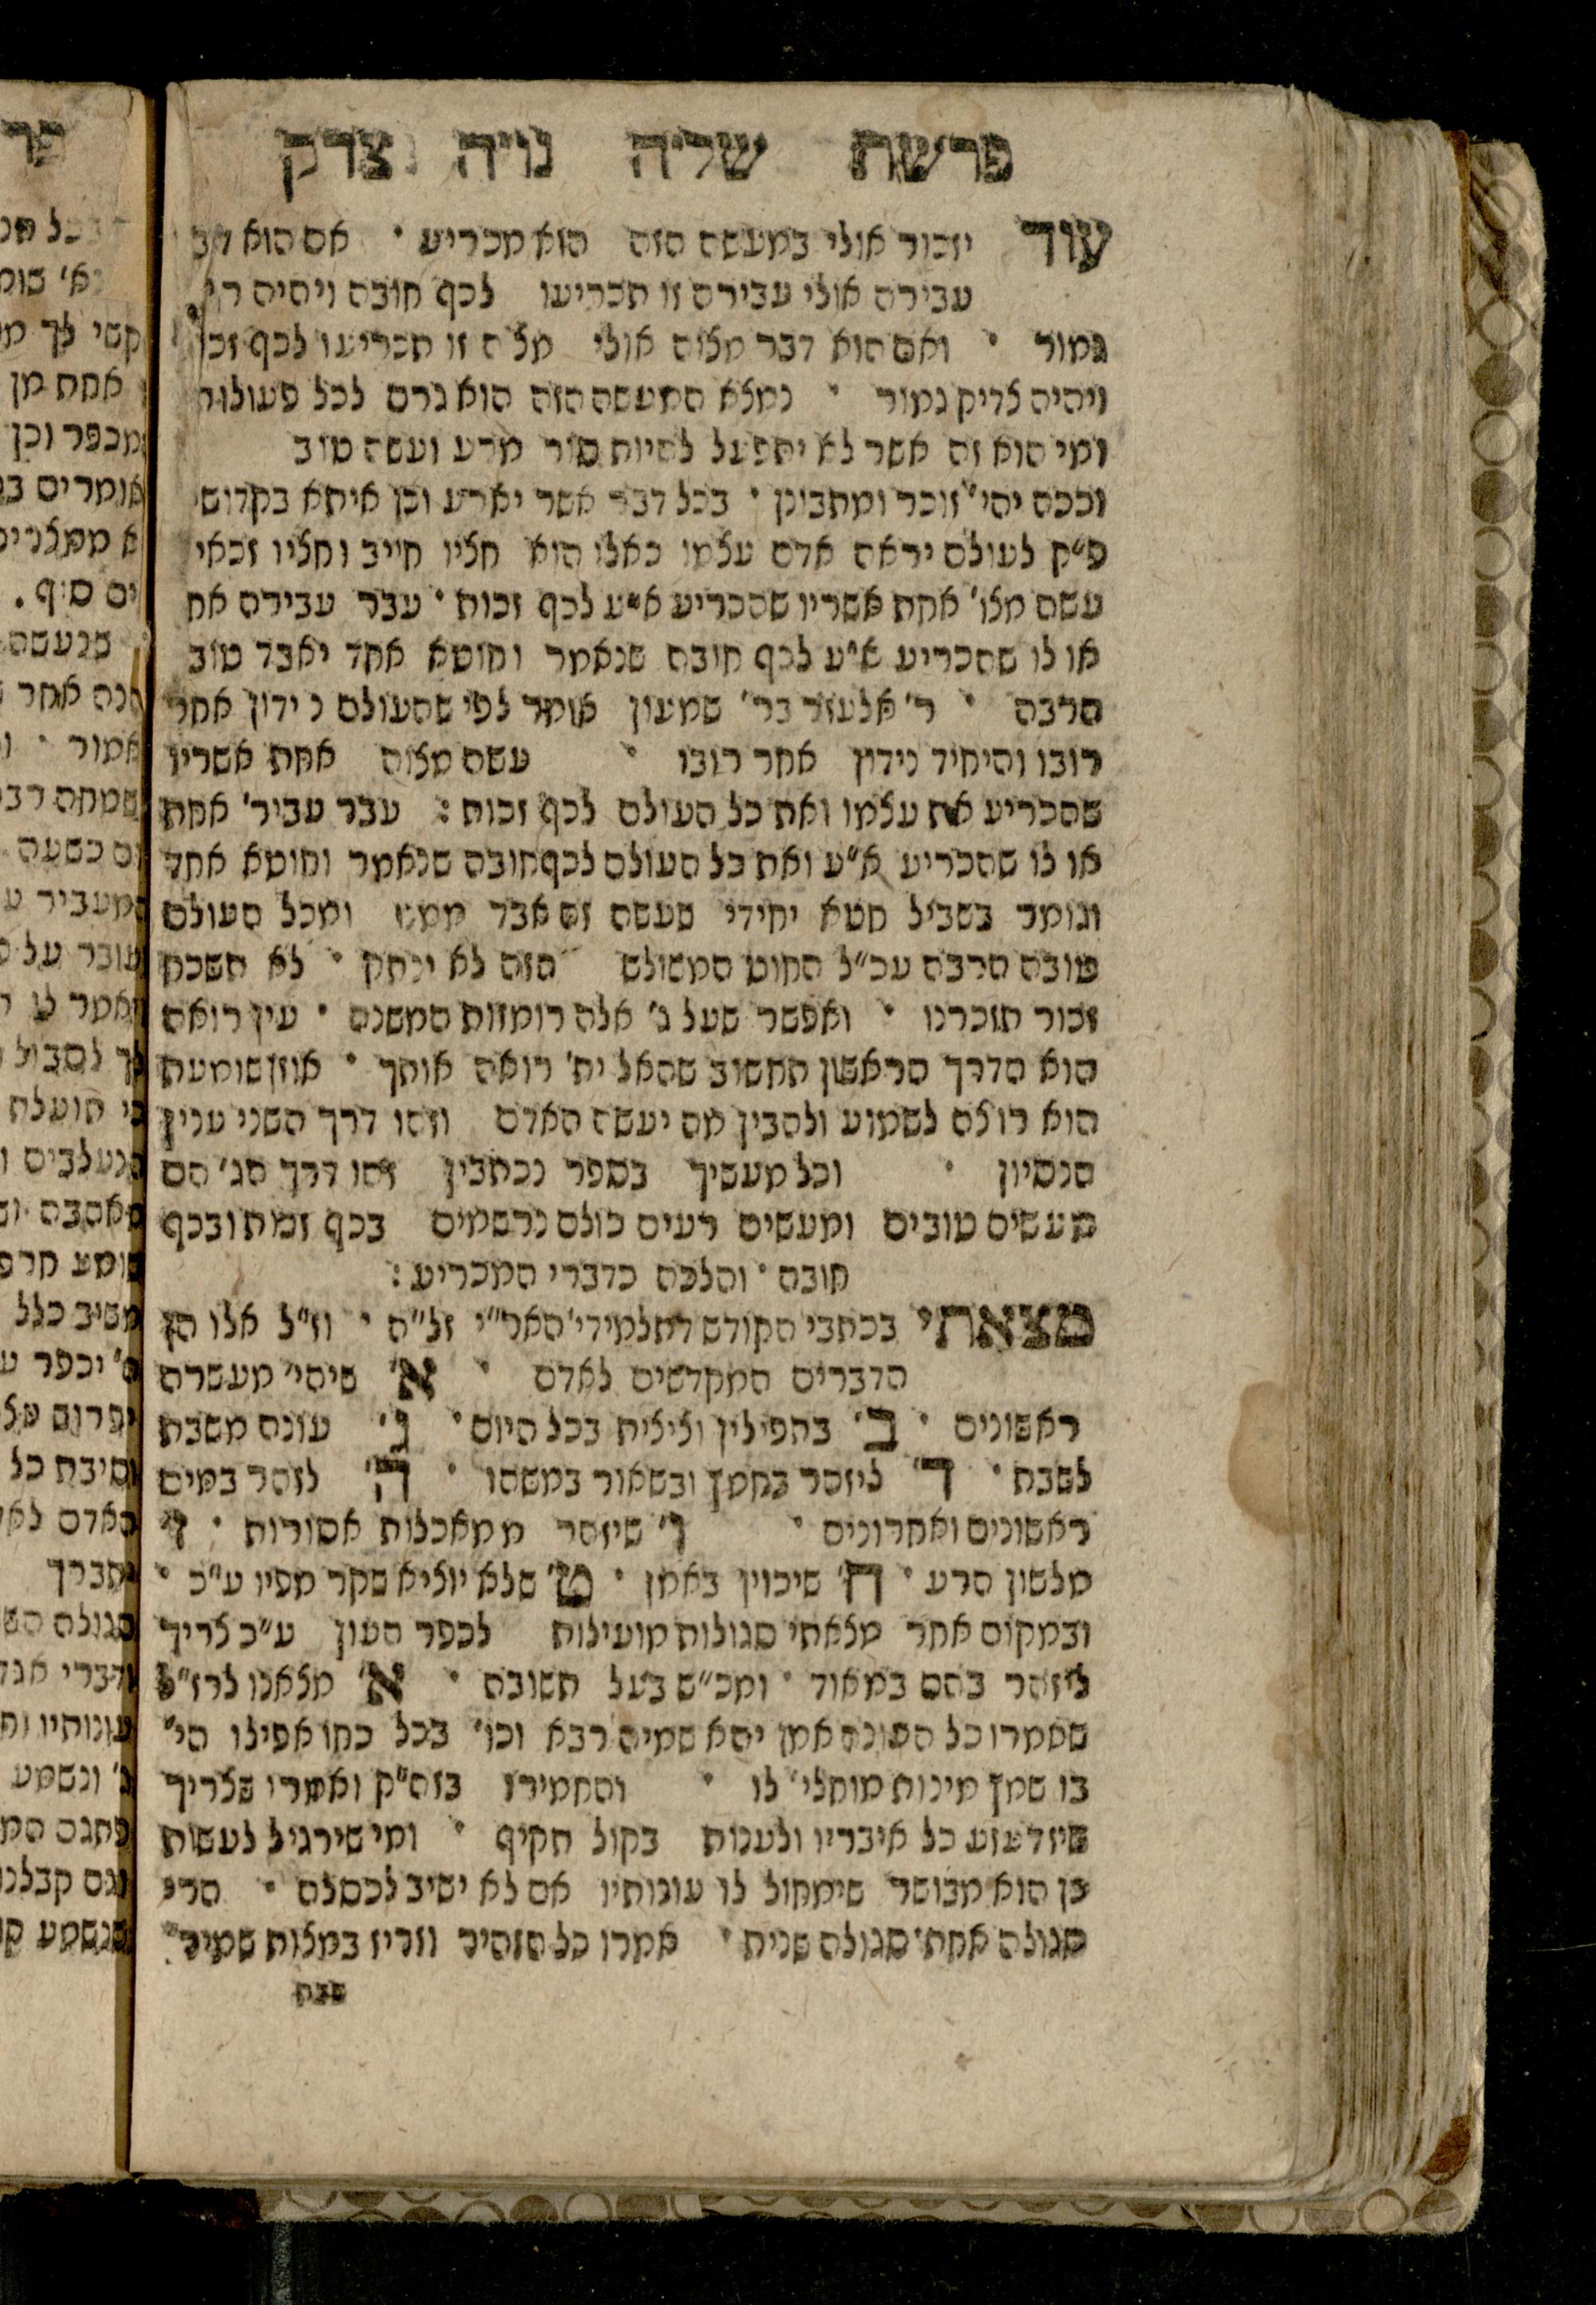 פרשת שלח נוה צדק
עוד יזכור אולי במעשה הזה הוא מכריע · אם הוא דב
עבירה אולי עבירה זו תכריעו לכף חובה ויהיה
גמור · ואם הוא דבר מצוה אולי מצוה זו תכריעו לכף זכו
ויהיה צדיק גמור · נמצא המעשה הזה הוא גרם לכל פעולות
ומי הוא זה אשר לא יתפעל להיות סור מרע ועשה טוב
וככה יהי' זוכר ומתבונן · בכל דבר אשר יארע וכן איתא בקדושי
פ"ק לעולם יראה אדם עצמו כאלו הוא חציו חייב וחציו זכאי
עשה מצו' אחת אשריו שהכריע א"ע לכף זכות · עבר עבירה אח
או לו שהכריע א"ע לכף חובה שנאמר וחוטא אחד יאבד טוב
הרבה · ר' אלעזר בר' שמעון אומר לפי שהעולם נידון אחר
רובו והיחיד נידון אחר רובו · עשה מצוה אחת אשריו
שהכריע את עצמו ואת כל העולם לכף זכות : עבר עביר' אחת
או לו שהכריע א"ע ואת כל העולם לכף חובה שנאמר וחוטא אחד
וגומר בשביל חטא יחידי שעשה זה אבד ממנו ומכל העולם
טובה הרבה עכ"ל החוט המשולש הזה לא ינתק · לא תשכח
זכור תזכרנו · ואפשר שעל ג' אלה רומזות המשנה · עין רואה
הוא הדרך הראשון תחשוב שהאל ית' רואה אותך · אוזן שומעת
הוא רוצה לשמוע ולהבין מה יעשה האדם וזהו דרך השני ענין
הנסיון · וכל מעשיך בספר נכתבין זהו דרך הג' הם
מעשים טובים ומעשים רעים כולם נרשמים בכף זכות ובכף
חובה · והלכה כדברי המכריע :
מצאתי בכתבי הקודש דתלמידי' האר"י זל"ה · וז"ל אלו הן
הדברים המקדשים לאדם · א' שיהי' מעשרה
ראשונים · ב' בתפילין וציצית בכל היום · ג' עונה משבת
לשבת · ד' ליזהר בחמץ ובשאור במשהו · ה' לזהר במים
ראשונים ואחרונים · ו' שיזהר ממאכלות אסורות · ז'
מלשון הרע · ח' שיכוין באמן · ט' שלא יוציא שקר מפיו ע"כ ·
ובמקום אחר מצאתי סגולות מועילות לכפר העון ע"כ צריך
ליזהר בהם במאוד · ומכ"ש בעל תשובה · א' מצאנו לרז"ל
שאמרו כל העונה אמן יהא שמיה רבא וכו' בכל כחו אפילו הי'
בו שמץ מינות מוחלי' לו · והחמירו בזה"ק ואמרו שצריך
שיזדעזע כל איבריו ולענות בקול תקיף · ומי שירגיל לעשות
כן הוא מבושר שימחול לו עונותיו אם לא ישיב לכסלה · הרי
סגולה אחת · סגולה שנית · אמרו כל הזהיר וזריז במצות שמיר'
שבת